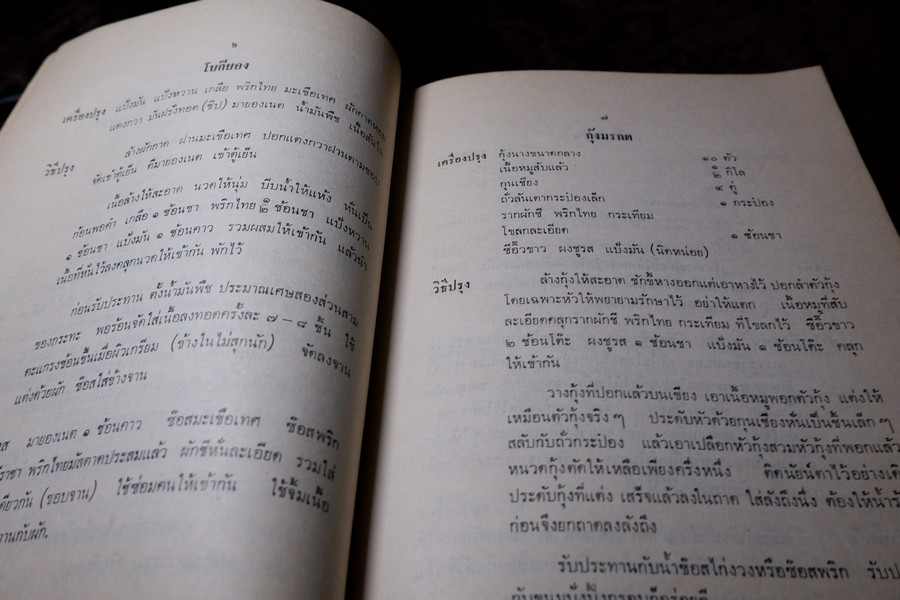 ๖
โบกียอง
เครื่องปรุง แป้งมัน แป้งหวาน เกลือ พริกไทย มะเขือเทศ ผักกาดหอม
แตงกวา มันฝรั่งทอด (ชิบ) มายองเนต น้ำมันพืช เนื้อสันใน
วิธีปรุง ล้างผักกาด ผ่านมะเขือเทศ ปอกแตงกวาผ่านตามชอบ
จัดเข้าตู้เย็น ตีมายองเนต เข้าตู้เย็น
เนื้อล้างให้สะอาด นวดให้นุ่ม บีบน้ำให้แห้ง หั่นเป็น
ก้อนพอคำ เกลือ ๑ ช้อนชา พริกไทย ๑/๒ ช้อนชา แป้งหวาน
๑ ช้อนชา แป้งมัน ๑ ช้อนคาว รวมผสมให้เข้ากัน แล้วนำ
เนื้อที่หั่นไว้ลงคลุกนวดให้เข้ากัน พักไว้
ก่อนรับประทาน ตั้งน้ำมันพืช ประมาณเศษสองส่วนสาม
ของกระทะ พอร้อนจัดใส่เนื้อลงทอดครั้งละ ๗ — ๘ ชิ้น ใช้
ตะแกรงช้อนขึ้นเมื่อผิวเกรียม (ข้างในไม่สุกนัก) จัดลงจาน
แต่งด้วยผัก ซ๊อสใส่ข้างจาน
มายองเนต ๑ ช้อนคาว ซ๊อสมะเขือเทศ ซ๊อสพริก
พริกไทยมัสตาดประสมแล้ว ผักชีหั่นละเอียด รวมใส่
เดียวกัน (ขอบจาน) ใช้ซ่อมคนให้เข้ากัน ใช้จิ้มเนื้อ
กับผัก.
๗
กุ้งมรกต
เครื่องปรุง กุ้งนางขนาดกลาง ๑๐ ตัว
เนื้อหมูสับแล้ว ๑/๒ กิโล
กุนเชียง ๔ คู่
ถั่วลันเตากระป๋องเล็ก ๑ กระป๋อง
รากผักชี พริกไทย กระเทียม
โขลกละเอียด ๑ ช้อนชา
ซีอิ๊วขาว ผงชูรส แป้งมัน (นิดหน่อย)
วิธีปรุง ล้างกุ้งให้สะอาด ชักขี้หางออกแต่เอาหางไว้ ปอกลำตัวกุ้ง
โดยเฉพาะหัวให้พยายามรักษาไว้ อย่าให้แตก เนื้อหมูที่สับ
ละเอียดคลุกรากผักชี พริกไทย กระเทียม ที่โขลกไว้ ซีอิ๊วขาว
๒ ช้อนโต๊ะ ผงชูรส ๑ ช้อนชา แป้งมัน ๑ ช้อนโต๊ะ คลุก
ให้เข้ากัน
วางกุ้งที่ปอกแล้วบนเขียง เอาเนื้อหมูพอกตัวกุ้ง แต่งให้
เหมือนตัวกุ้งจริง ๆ ประดับหัวด้วยกุนเชียงหั่นเป็นชิ้นเล็ก ๆ
สลับกับถั่วกระป๋อง แล้วเอาเปลือกหัวกุ้งสวมหัวกุ้งที่พอกแล้ว
หนวดกุ้งตัดให้เหลือเพียงครึ่งหนึ่ง ติดนัยน์ตาไว้อย่างเดิ
ประดับกุ้งที่แต่ง เสร็จแล้วลงในถาด ใส่ลังถึงนึ่ง ต้องให้น้ำ
ก่อนจึงยกถาดลงลังถึง
รับประทานกับน้ำซ๊อสไก่งวงหรือซ๊อสพริก